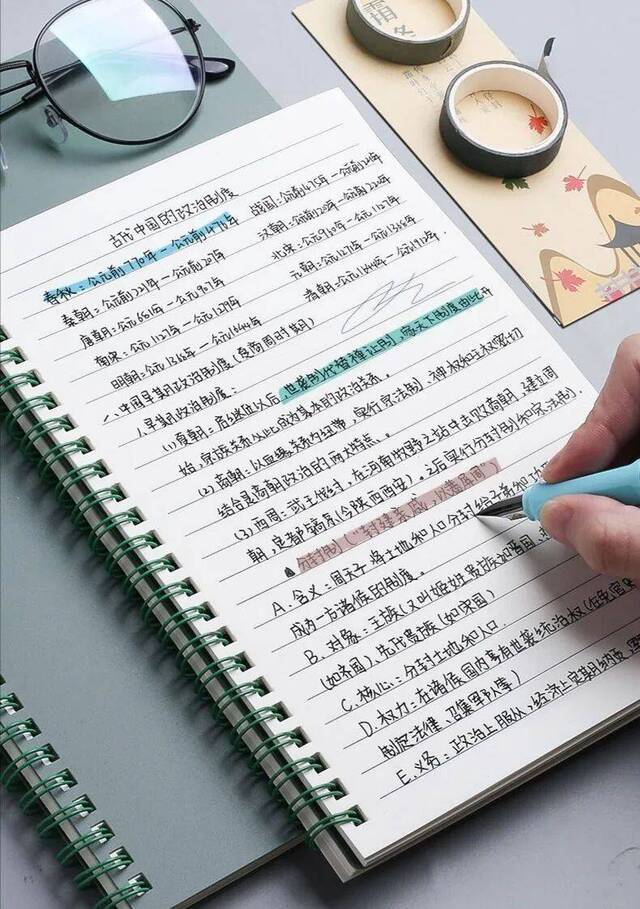 古代中国的政治制度
春秋：公元前770年—公元前476年 战国：公元前475年—公元前221年
秦朝：公元前221年—公元前207年 汉朝：公元前202年—公元220年
唐朝：公元618年—公元907年 北宋：公元960年—公元1127年
南宋：公元1127年—公元1279年 元朝：公元1271年—公元1368年
明朝：公元1368年—公元1644年 清朝：公元1644年—公元1912年
一、中国早期政治制度（夏商周时期）
1.早期政治制度：
(1)夏朝：启继位以后，世袭制代替禅让制，家天下制度由此开
始，宗族关系从此成为基本的政治关系。
(2)商朝：以血缘关系为纽带，实行宗法制。神权和王权密切
结合是商朝政治的两大特点。
(3)西周：武王伐纣，在河南牧野之战中击败商朝，建立周
朝，定都镐京(今陕西西安)。之后实行分封制和宗法制。
分封制（“封建亲戚，以藩屏周”）
A.含义：周天子将土地和人口分封给
成为一方诸侯的制度。
B.对象：王族(又叫姬姓贵族如鲁国
(如齐国)、先代贵族(如宋国)
C.核心：分封土地和人口.
D.权力：在诸侯国内享有世袭统治权(任免官
制定法律、召集军队等)
E.义务：政治上服从，经济上定期纳贡